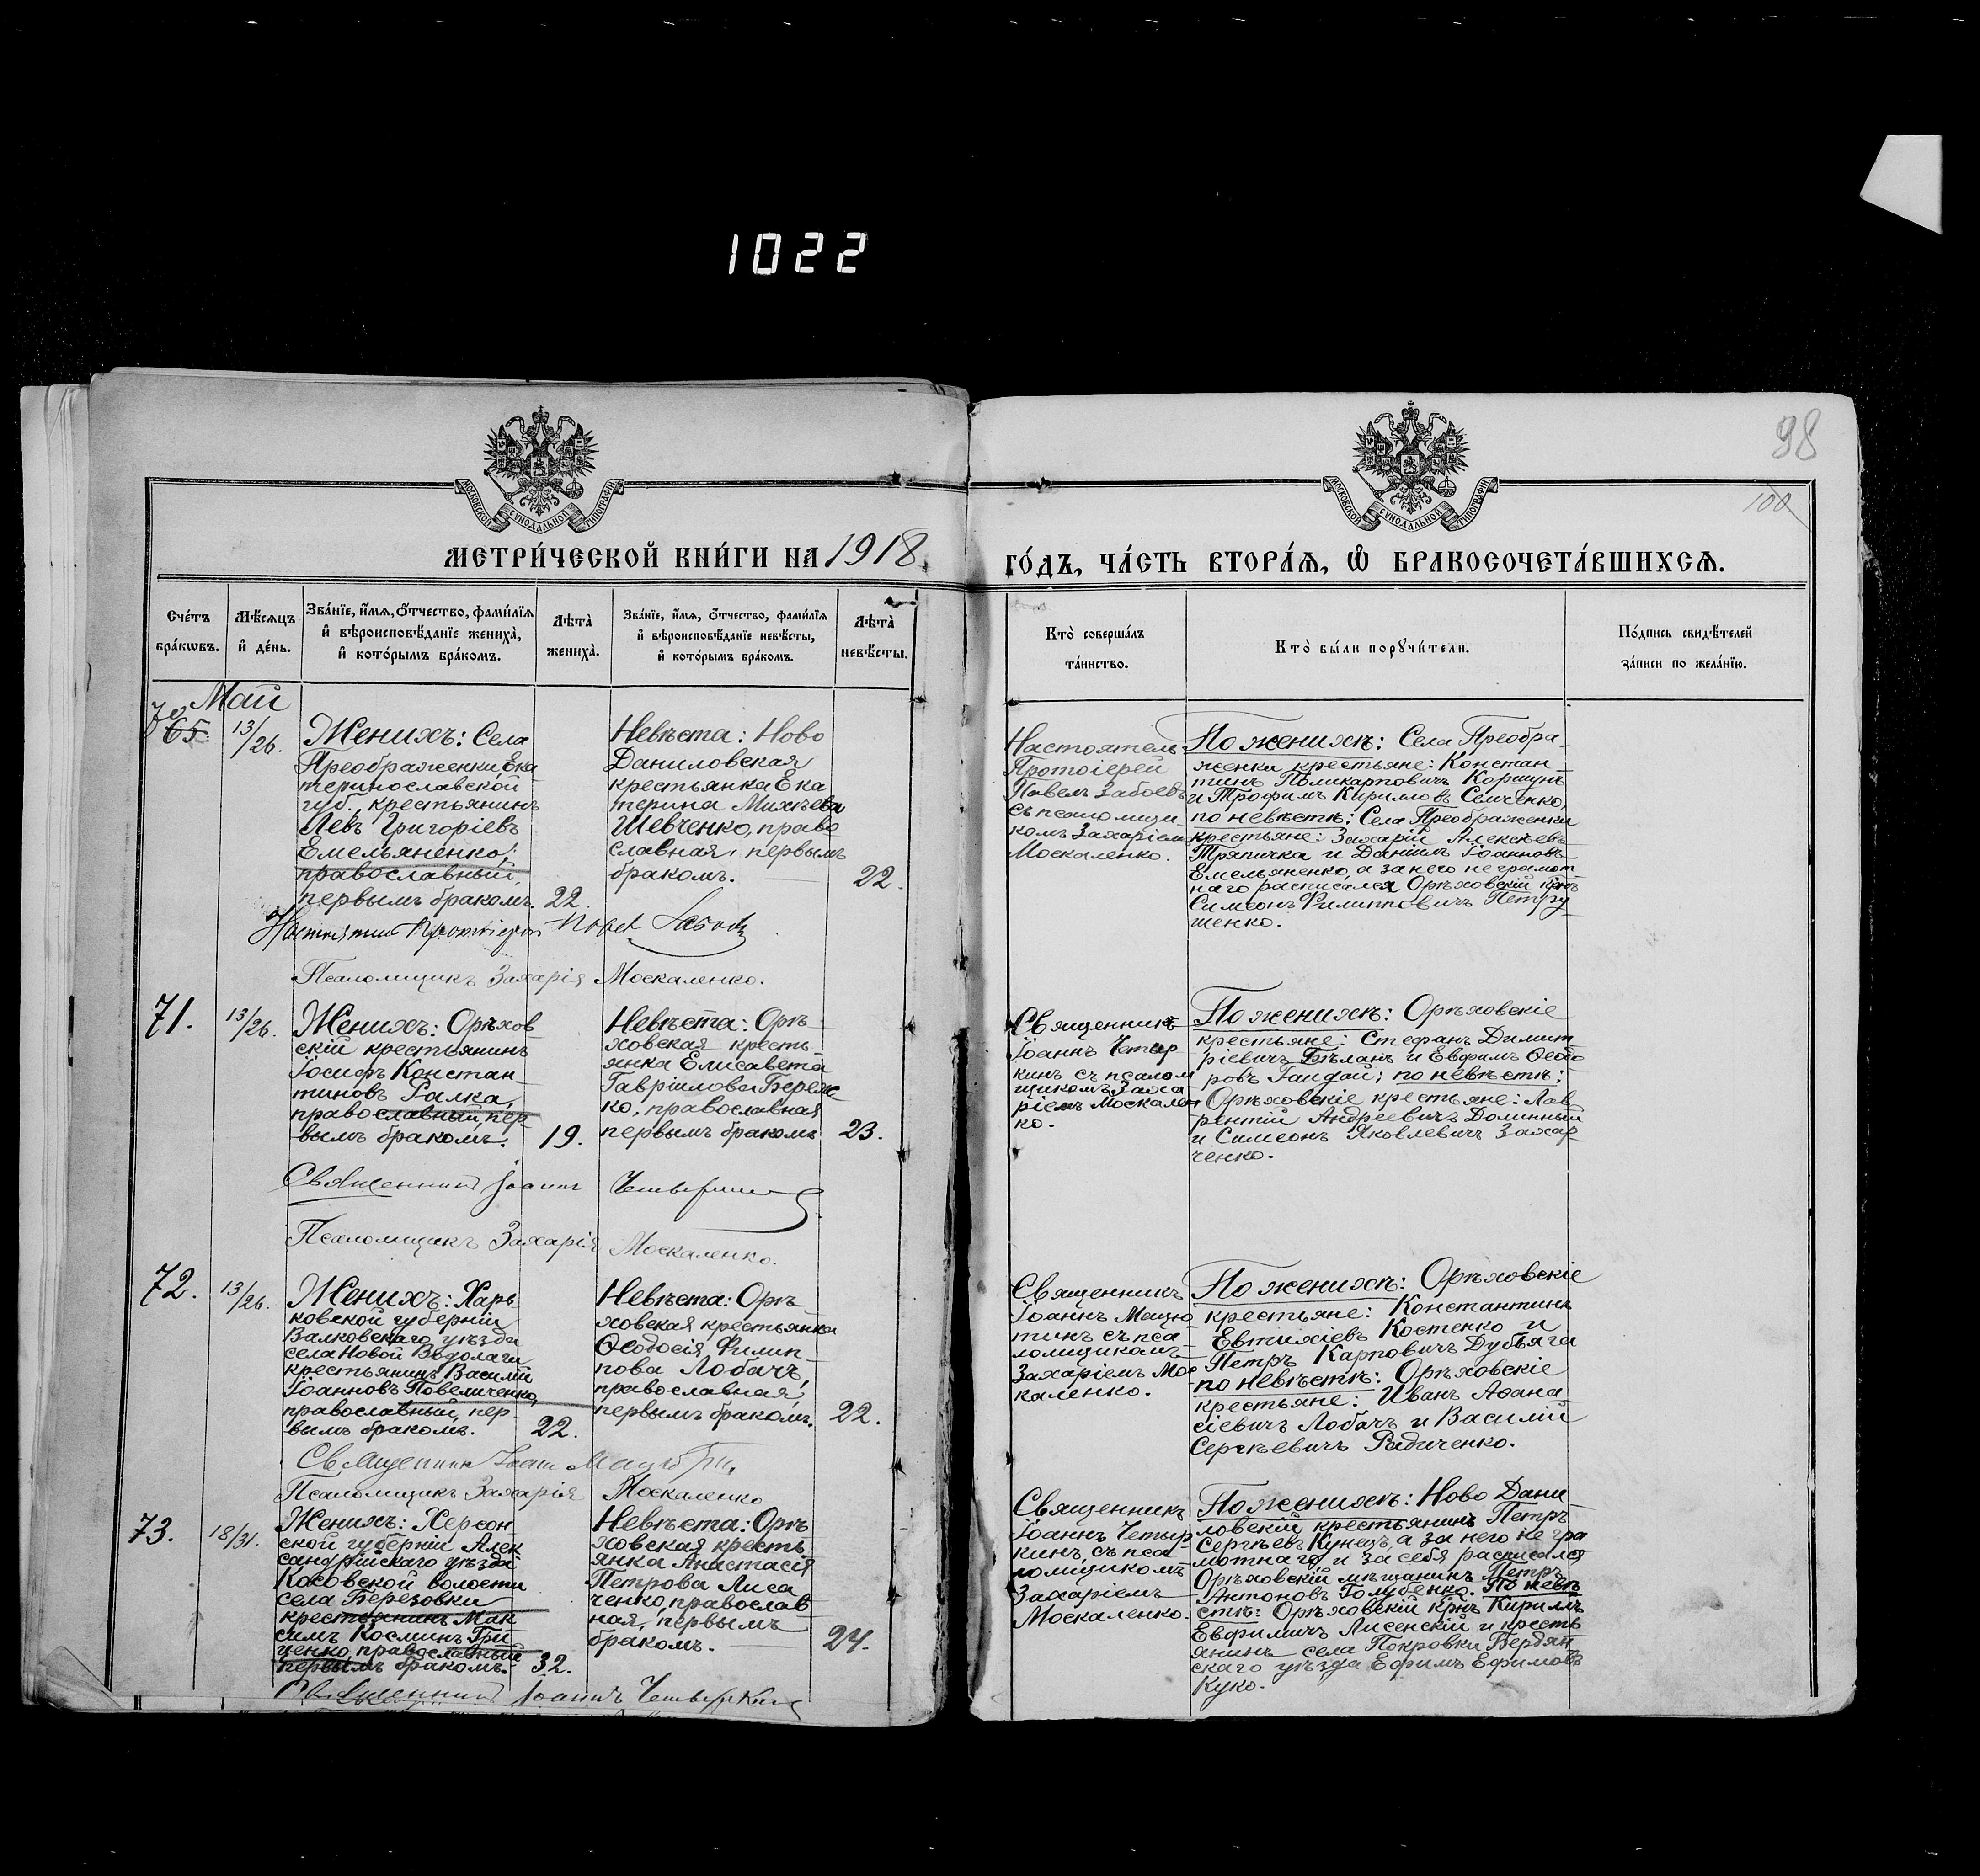 1022
98
100
МОСКОВСКОЙ СѴНОДАЛЬНОЙ ТИПОГРАФІИ
МОСКОВСКОЙ СѴНОДАЛЬНОЙ ТИПОГРАФІИ
МЕТРИ́ЧЕСКОЙ КНИ́ГИ НА 1918
ГО́ДЪ, ЧА́СТЬ ВТОРА́Ѧ, Ѽ БРАКОСОЧЕТА́ВШИХСѦ.
Сче́тъ
бра́кѡвъ.
Мѣ́сѧцъ
и҆ де́нь.
Зва́нїе, и҆́мѧ, ѻ҆́тчество, фами́лїѧ
и҆ вѣроисповѣ́данїе жениха̀,
и҆ кото́рымъ бра́комъ.
Лѣта̀
жениха̀.
Зва́нїе, и҆́мѧ, ѻ҆́тчество, фами́лїѧ
и҆ вѣроисповѣ́данїе невѣ́сты,
и҆ кото́рымъ бра́комъ.
Лѣта̀
невѣ́сты.
Кто̀ соверша́лъ
та́инство.
Кто̀ бы́ли порꙋчи́тели.
По́дпись свидѣ́телей
за́писи по жела́нїю.
Май
70
65.
13/26.
Женихъ: Села
Преображенки, Ека
теринославской
губ., крестьянинъ
Левъ Григоріевъ
Емельяненко,
православный,
первымъ бракомъ.
22.
Невѣста: Ново
Даниловская
крестьянка Ека
терина Михѣева
Шевченко, право
славная, первымъ
бракомъ.
22.
Настоятель
Протоіерей
Павелъ Забоевъ
съ псаломщи
комъ Захаріемъ
Москаленко.
По женихѣ: Села Преобра-
женки крестьяне: Констан-
тинъ Поликарповичъ Коршунъ
и Трофимъ Кирилловъ Семченко,
по невѣстѣ: Села Преображенки
крестьяне: Захарій Алексѣевъ
Тряпичка и Даніилъ Іоанновъ
Емельяненко, а за него неграмот
наго расписался Орѣховскій крнъ
Симеонъ Филипповичъ Петру
шенко.
Псаломщикъ Захарія Москаленко.
71.
13/26.
Женихъ: Орѣхов
скій крестьянинъ
Іосифъ Констан-
тиновъ Ралка,
православный, пер
вымъ бракомъ.
19.
Невѣста: Орѣ
ховская кресть
янка Елисавета
Гавріилова Береж
ко, православная
первымъ бракомъ
23.
Священникъ
Іоаннъ Четыр
кинъ съ псалом
щикомъ Заха
ріемъ Москален
ко.
По женихѣ: Орѣховскіе
крестьяне: Стефанъ Димит
ріевичъ Бѣланъ и Евфимъ Ѳеодо
ровъ Гайдай; по невѣстѣ:
Орѣховскіе крестьяне: Лав
рентій Андреевичъ Долинный
и Симеонъ Яковлевичъ Захар
ченко.
Священникъ Іоаннъ
Псаломщикъ Захарія Москаленко.
72.
13/26.
Женихъ: Харь
ковской губерніи
Валковскаго уѣзда
села Новой Водолаги
крестьянинъ Василій
Іоанновъ Повеличенко,
православный, пер-
вымъ бракомъ.
22.
Невѣста: Орѣ
ховская крестьянка
Ѳеодосія Филип-
пова Лобачъ,
православная,
первымъ бракомъ.
22.
Священникъ
Іоаннъ Мацю
тинъ съ пса
ломщикомъ
Захаріемъ Мос
каленко.
По женихѣ: Орѣховскіе
крестьяне: Константинъ
Евтихіевъ Костенко и
Петръ Карповичъ Дубъяга
по невѣстѣ: Орѣховскіе
крестьяне: Иванъ Аѳана
сіевичъ Лобачъ и Василій
Сергѣевичъ Радченко.
Священникъ
Псаломщикъ Захарія Москаленко
73.
18/31.
Женихъ: Херсон
ской губерніи Алек
сандрійскаго уѣзда
Косовской волости
села Березовки
крестьянинъ Мак
симъ Косминъ Гри
ценко, православный
первымъ бракомъ.
32.
Невѣста: Орѣ
ховская кресть
янка Анастасія
Петрова Лиса
ченко, православ
ная, первымъ
бракомъ.
24.
Священникъ
Іоаннъ Четыр
кинъ, съ пса
ломщикомъ
Захаріемъ
Москаленко.
По женихѣ: Ново Дани
ловскій крестьянинъ Петръ
Сергѣевъ Кунецъ, а за него негра
мотнаго и за себя расписался
Орѣховскій мѣщанинъ Петръ
Антоновъ Голубенко. По невѣ
стѣ: Орѣховскій крнъ Кириллъ
Евфимичъ Лисенскій и кресть
янинъ села Покровки Бердян
скаго уѣзда Ефимъ Ефимовъ
Куко.
Священникъ Іоаннъ Четыркинъ